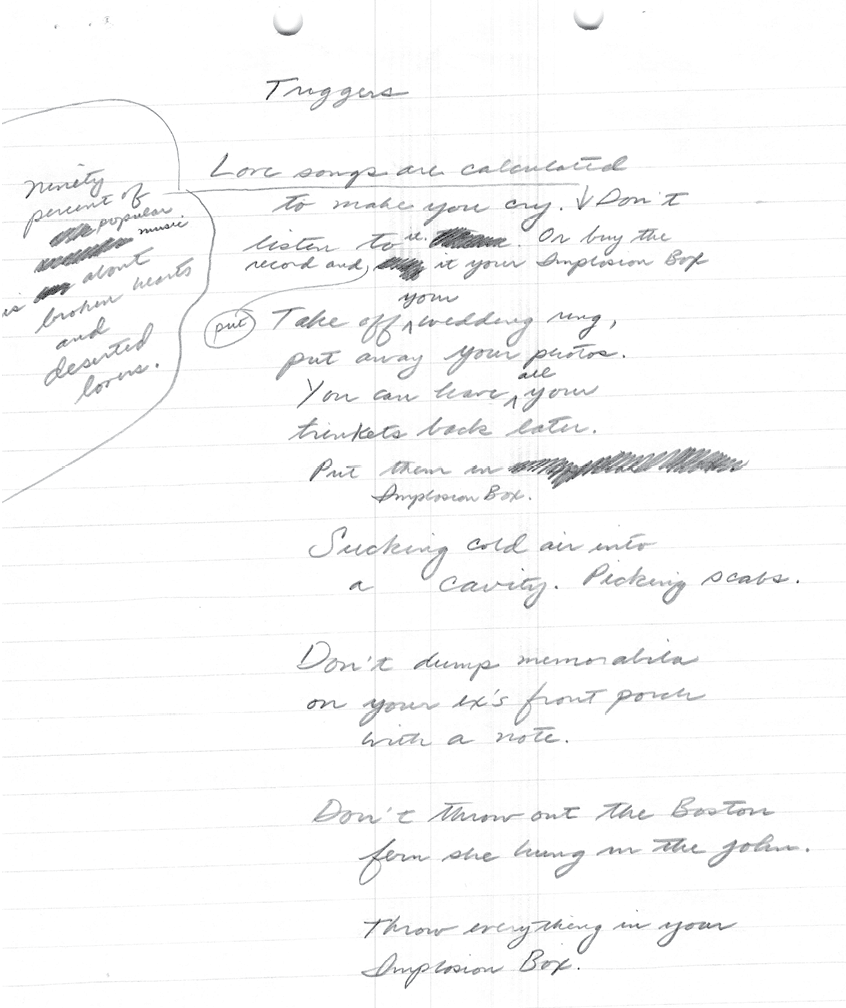 Triggers
Love songs are calculated
to make you cry. Don't
listen to it. Or buy the
record and put it your Implosion Box
Ninety
percent of
popular
music
is about
broken hearts
and
deserted
lovers.
Take off your wedding ring,
put away your photos.
You can leave all your
trinkets back later.
Put them in
Implosion Box.
Sucking cold air into
a cavity. Picking scabs.
Don't dump memorabila
on your ex's front porch
with a note.
Don't throw out the Boston
fern she hung in the john.
Throw everything in your
Implosion Box.